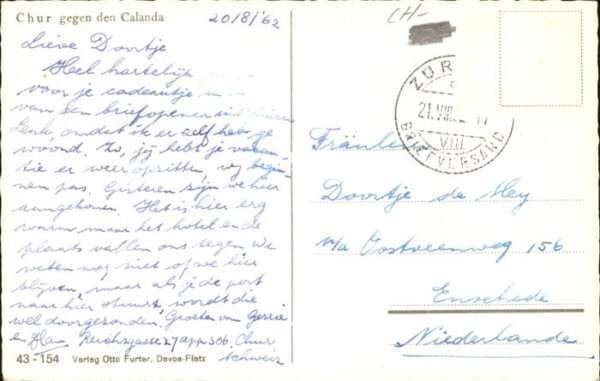 Chur gegen den Calanda
20/8/'62
CH-
Lieve Doortje
Heel hartelijk
voor je cadeautje
van een briefopener
Leuk, omdat ik er zelf heb ge
woond. Zo, jij hebt je vacan-
tie er weer opzitten, wij begin-
nen pas. Gisteren zijn we hier
aangekomen. Het is hier erg
warm maar het hotel en de
plaats vallen ons tegen We
weten nog niet of we hier
blijven, maar als je de post
naar hier stuurt, wordt die
wel doorgezonden. Groeten van Gerrie
en Han Reichsgasse 27 app 306 Chur
Schweiz
43-154 Verlag Otto Furter, Davos-Platz
ZÜR
21.VIII.
VIII
BRIEFVERSAND
Fräulein
Doortje de Mey
p/a Oostveenweg 156
Enschede
Niederlande